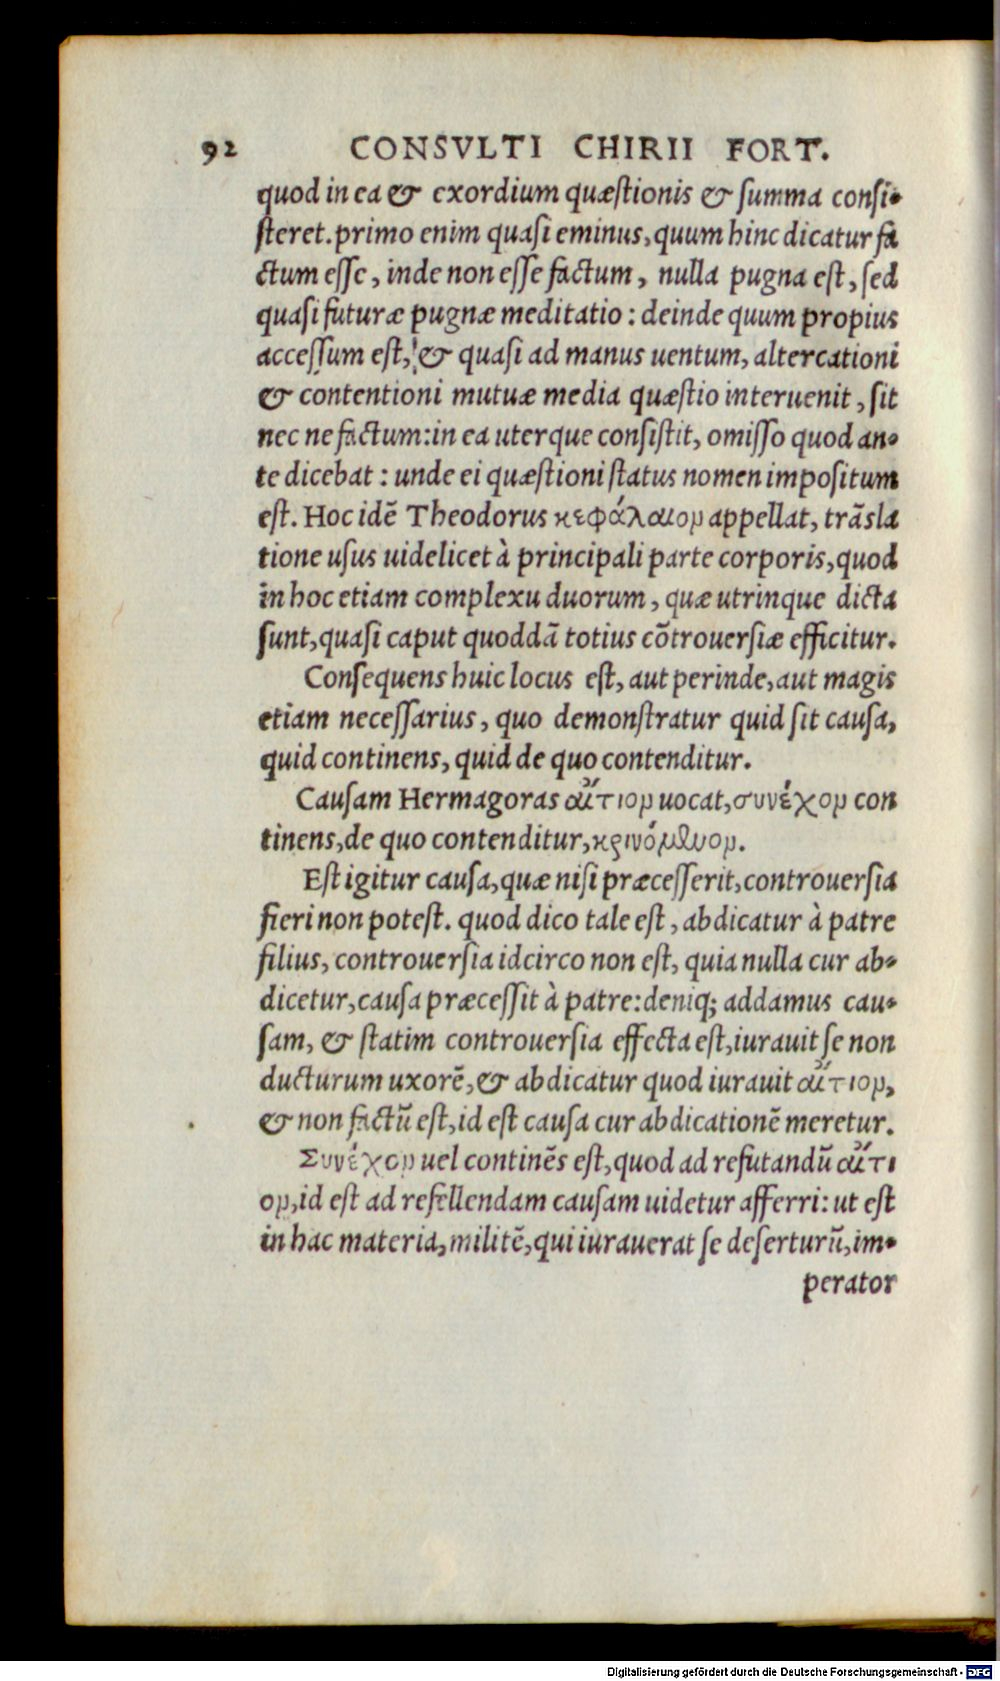 92 CONSVLTI CHIRII FORT.
quod in ea & exordium quæstionis & summa consi-
steret. primo enim quasi eminus, quum hinc dicatur fa
ctum esse, inde non esse factum, nulla pugna est, sed
quasi futuræ pugnæ meditatio: deinde quum propius
accessum est, & quasi ad manus uentum, altercationi
& contentioni mutuæ media quæstio interuenit, sit
nec ne factum: in ea uterque consistit, omisso quod an-
te dicebat: unde ei quæstioni status nomen impositum
est. Hoc idē Theodorus κεφάλαιον appellat, trāsla
tione usus uidelicet à principali parte corporis, quod
in hoc etiam complexu duorum, quæ utrinque dicta
sunt, quasi caput quoddā totius cōtrouersiæ efficitur.
Consequens huic locus est, aut perinde, aut magis
etiam necessarius, quo demonstratur quid sit causa,
quid continens, quid de quo contenditur.
Causam Hermagoras αἴτιον uocat, συνέχον con
tinens, de quo contenditur, κρινόμενον.
Est igitur causa, quæ nisi præcesserit, controuersia
fieri non potest. quod dico tale est, abdicatur à patre
filius, controuersia idcirco non est, quia nulla cur ab-
dicetur, causa præcessit à patre: deniq; addamus cau-
sam, & statim controuersia effecta est, iurauit se non
ducturum uxorē, & abdicatur quod iurauit αἴτιον,
& non factū est, id est causa cur abdicationē meretur.
Συνέχον uel continēs est, quod ad refutandū αἴτι
ον, id est ad refellendam causam uidetur afferri: ut est
in hac materia, militē, qui iurauerat se deserturū, im-
perator
Digitalisierung gefördert durch die Deutsche Forschungsgemeinschaft - DFG